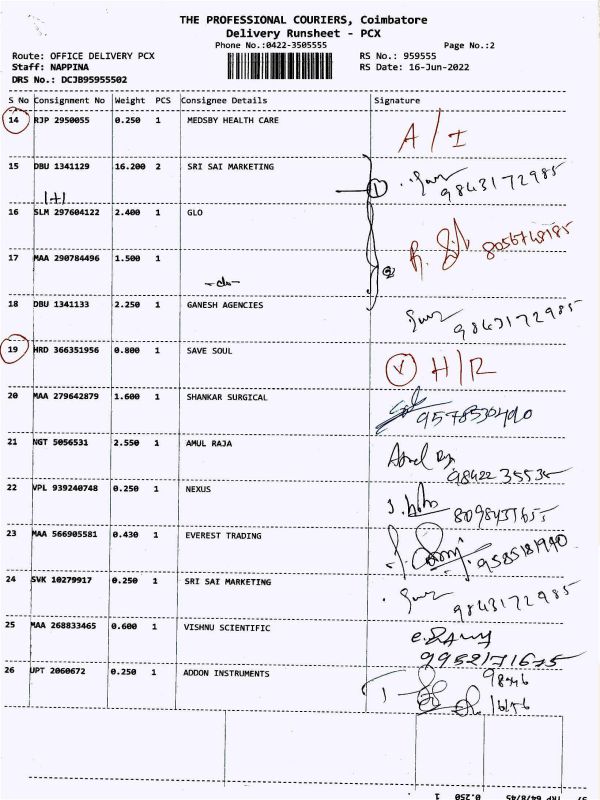 THE PROFESSIONAL COURIERS, Coimbatore
Delivery Runsheet - PCX
Phone No.:0422-3505555 Page No.:2
Route: OFFICE DELIVERY PCX RS No.: 959555
Staff: NAPPINA RS Date: 16-Jun-2022
DRS No.: DCJB95955502
S No Consignment No Weight PCS Consignee Details Signature
14 RJP 2950055 0.250 1 MEDSBY HEALTH CARE A/I
15 DBU 1341129 16.200 2 SRI SAI MARKETING 9843172985
1+1
16 SLM 297604122 2.400 1 GLO 8056748185
17 MAA 290784496 1.500 1
-do-
18 DBU 1341133 2.250 1 GANESH AGENCIES 9843172985
19 HRD 366351956 0.800 1 SAVE SOUL H/R
20 MAA 279642879 1.600 1 SHANKAR SURGICAL
21 NGT 5056531 2.550 1 AMUL RAJA 98422 35535
22 VPL 939240748 0.250 1 NEXUS
23 MAA 566905581 0.430 1 EVEREST TRADING 9585181990
24 SVK 10279917 0.250 1 SRI SAI MARKETING 9843172985
25 MAA 268833465 0.600 1 VISHNU SCIENTIFIC
9952171675
26 UPT 2060672 0.250 1 ADDON INSTRUMENTS